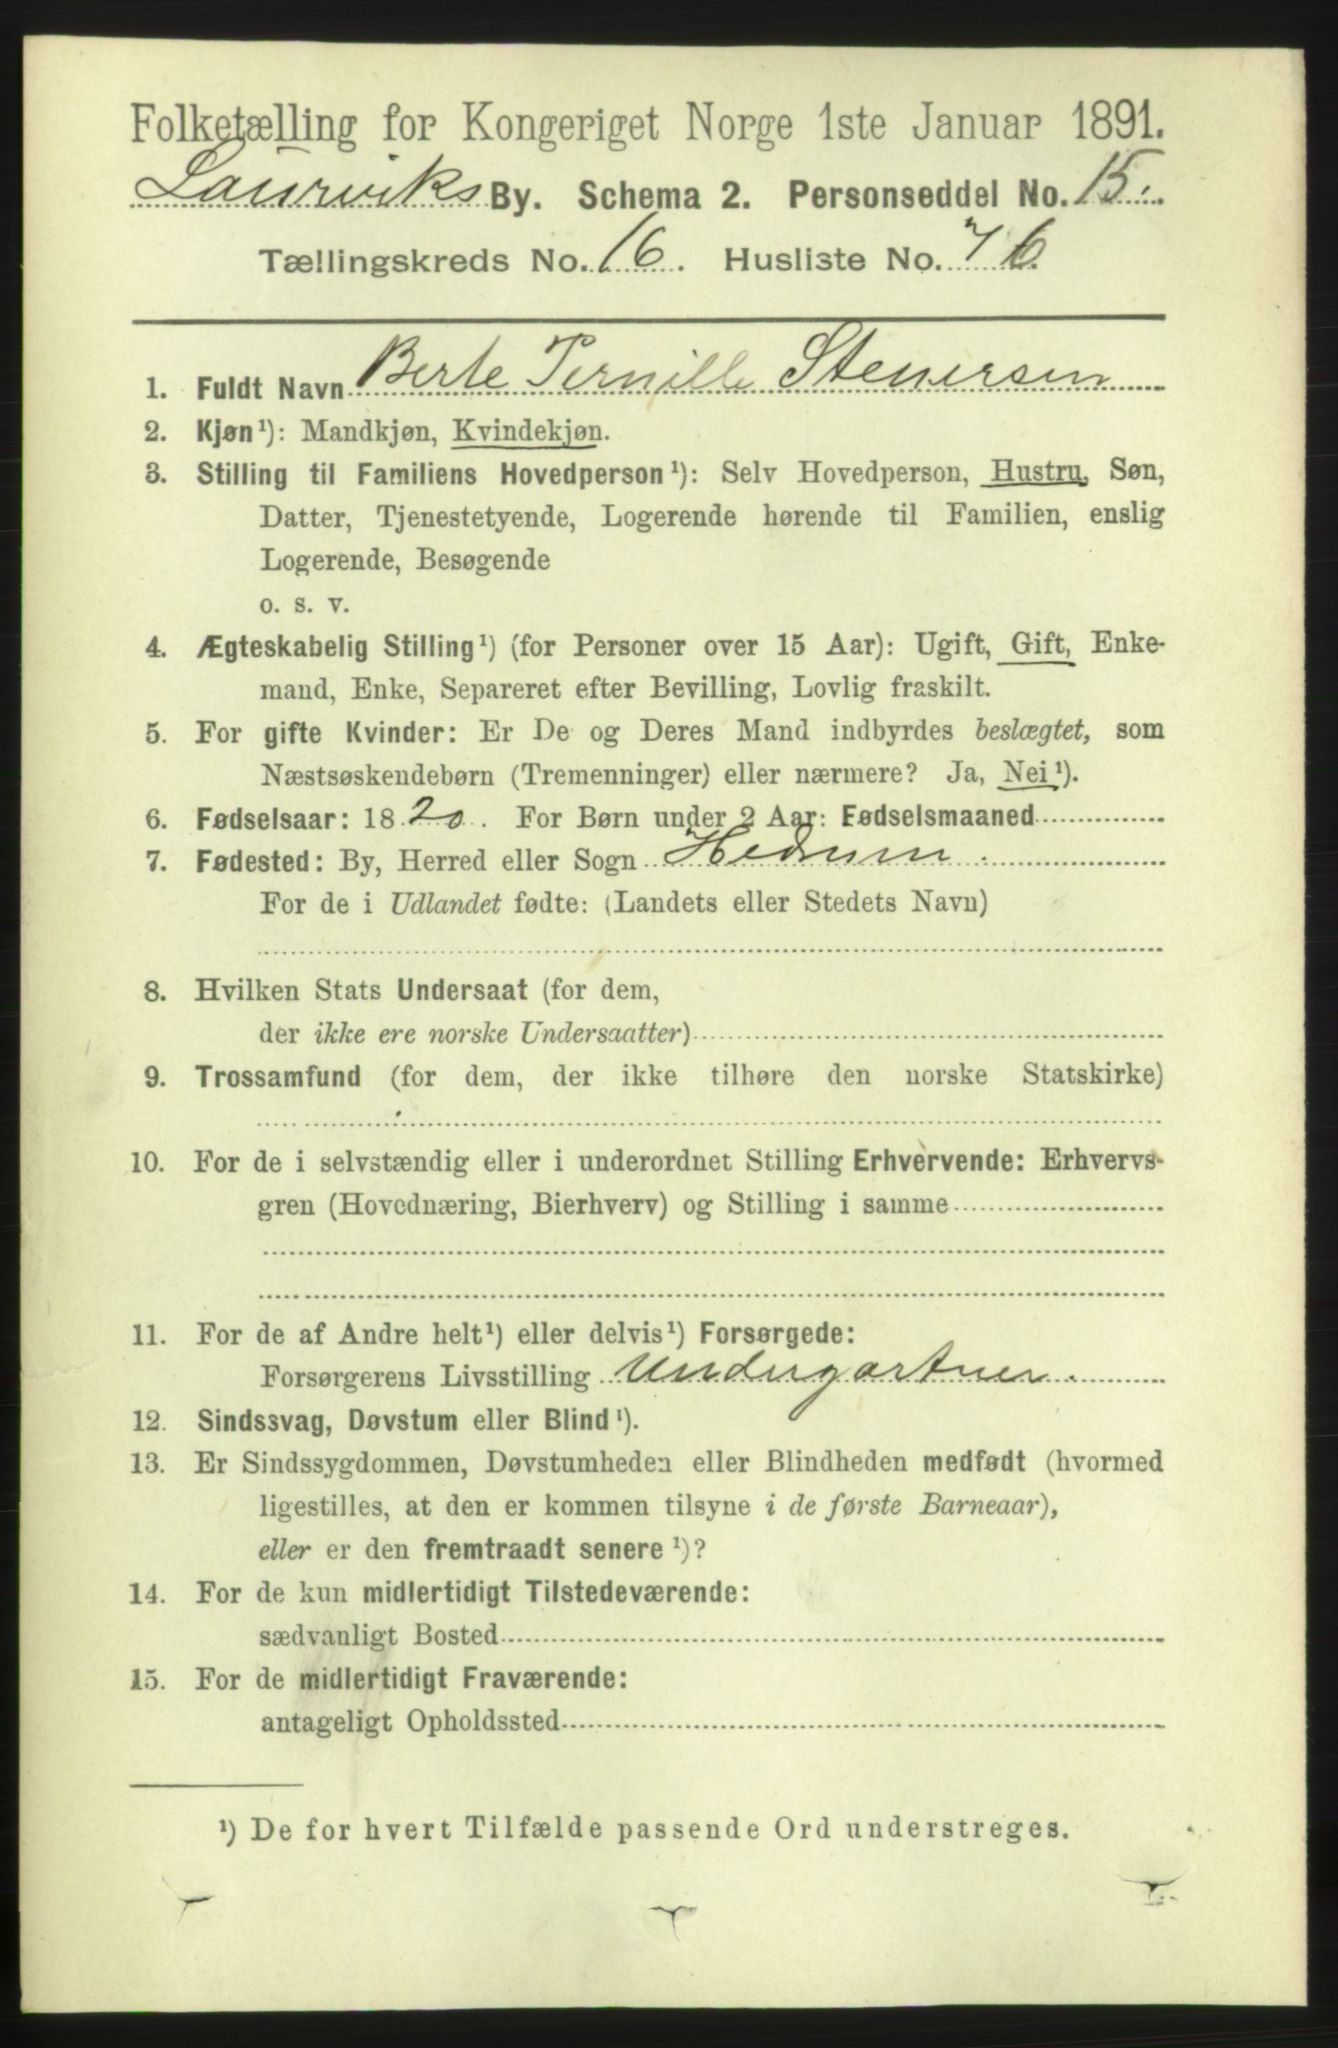 Folketælling for Kongeriget Norge 1ste Januar 1891.
Laurviks By. Schema 2. Personseddel No. 15.
Tællingskreds No. 16. Husliste No. 76.
1. Fuldt Navn Berte Pernille Stenersen
2. Kjøn¹): Mandkjøn, Kvindekjøn.
3. Stilling til Familiens Hovedperson¹): Selv Hovedperson, Hustru, Søn,
Datter, Tjenestetyende, Logerende hørende til Familien, enslig
Logerende, Besøgende
o. s. v.
4. Ægteskabelig Stilling¹) (for Personer over 15 Aar): Ugift, Gift, Enke-
mand, Enke, Separeret efter Bevilling, Lovlig fraskilt.
5. For gifte Kvinder: Er De og Deres Mand indbyrdes beslægtet, som
Næstsøskendebørn (Tremenninger) eller nærmere? Ja, Nei¹).
6. Fødselsaar: 1820. For Børn under 2 Aar: Fødselsmaaned
7. Fødested: By, Herred eller Sogn Hedrum.
For de i Udlandet fødte: (Landets eller Stedets Navn)
8. Hvilken Stats Undersaat (for dem,
der ikke ere norske Undersaatter)
9. Trossamfund (for dem, der ikke tilhøre den norske Statskirke)
10. For de i selvstændig eller i underordnet Stilling Erhvervende: Erhvervs-
gren (Hovednæring, Bierhverv) og Stilling i samme
11. For de af Andre helt¹) eller delvis¹) Forsørgede:
Forsørgerens Livsstilling Undergartner.
12. Sindssvag, Døvstum eller Blind¹).
13. Er Sindssygdommen, Døvstumheden eller Blindheden medfødt (hvormed
ligestilles, at den er kommen tilsyne i de første Barneaar),
eller er den fremtraadt senere¹)?
14. For de kun midlertidigt Tilstedeværende:
sædvanligt Bosted
15. For de midlertidigt Fraværende:
antageligt Opholdssted
¹) De for hvert Tilfælde passende Ord understreges.